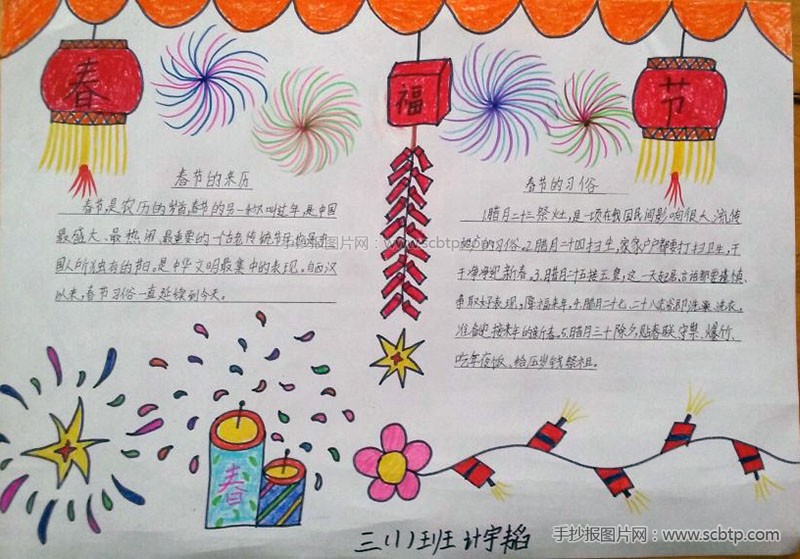 春
福
节
春节的来历
春节,是农历的岁首,春节的另一种叫过年,是中国
最盛大、最热闹、最重要的一个古老传统节日,也是中
国人所独有的节日。是中华文明最集中的表现。自西汉
以来,春节习俗一直延续到今天。
春节的习俗
1.腊月二十三祭灶,是一项在我国民间影响很大、流传
的习俗。2.腊月二十四扫尘,家家户户都要打扫卫生,干
干净净迎新春。3.腊月二十五接玉皇,这一天起居、言语都要谨慎,
争取好表现,降福来年。4.腊月二十七、二十八、洗澡、洗衣,
准备迎接来年的新春。5.腊月三十除夕,贴春联、守祟、爆竹、
吃年夜饭、给压岁钱、祭祖。
春
三(1)班 计宇韬
手抄报图片网:www.scbtp.com
手抄报图片网:www.scbtp.com